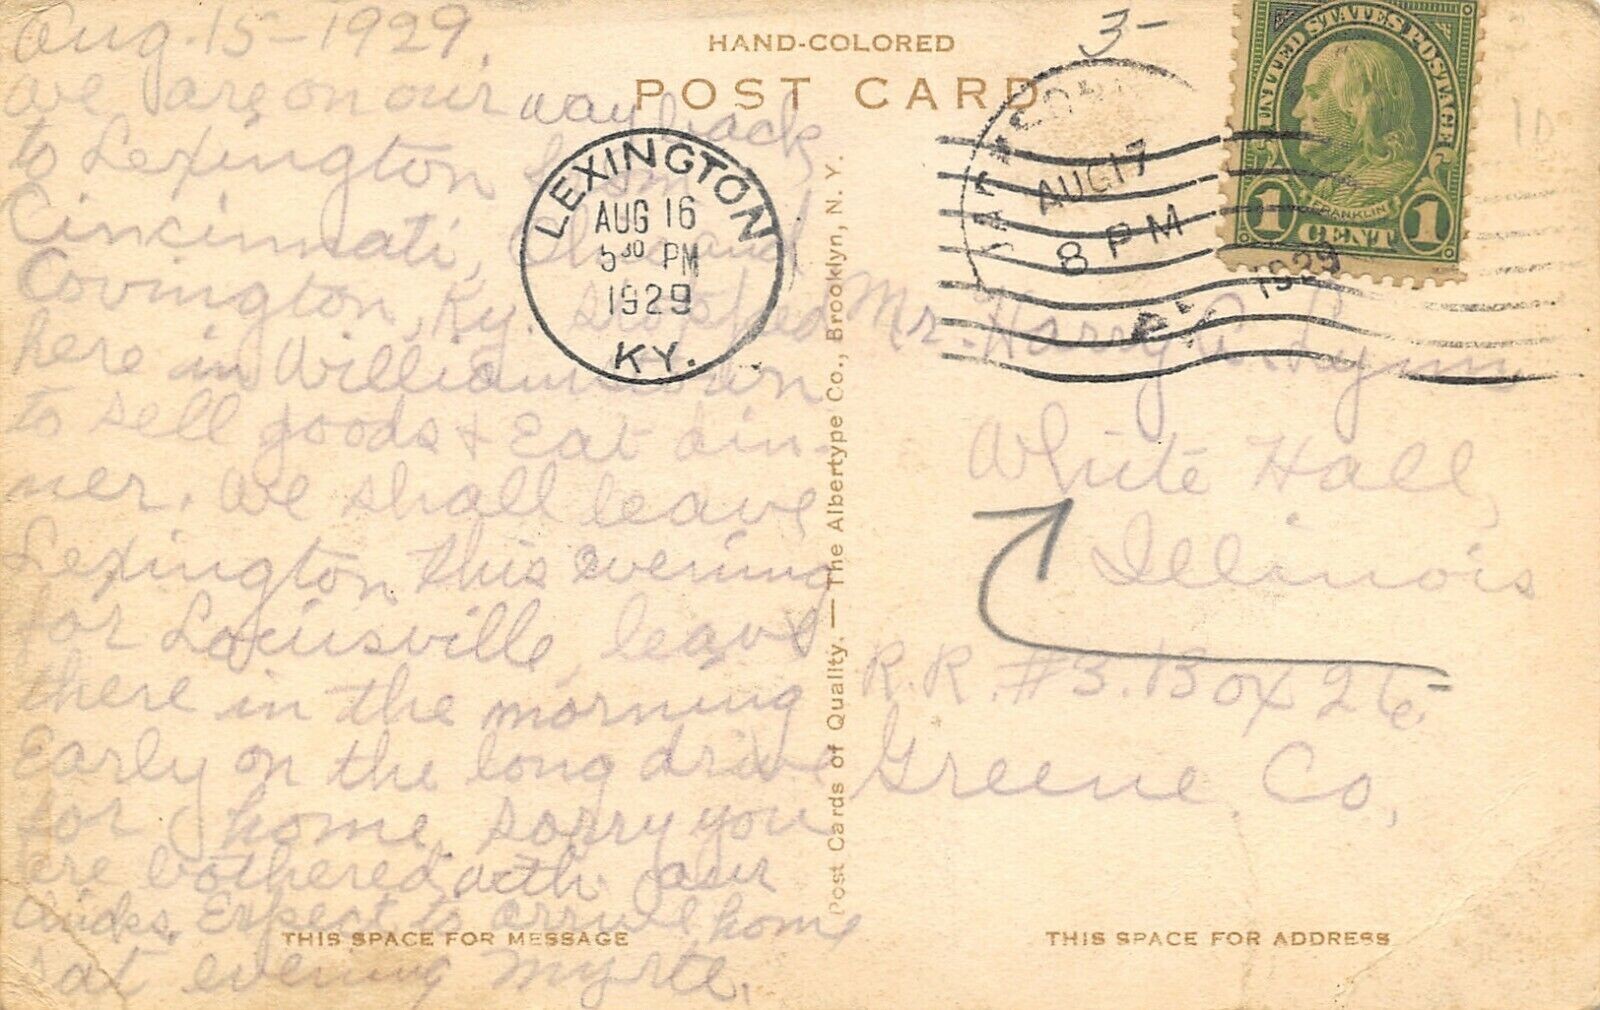 Aug. 15 - 1929.
We are on our way back
to Lexington from
Cincinnati, Ohio and
Covington, Ky. Stopped
here in Williamstown
to sell goods & Eat din-
ner. We shall leave
Lexington this evening
for Louisville, leave
there in the morning
Early on the long drive
for home. Sorry you
are bothered with our
chicks. Expect to arrive home
Sat evening Myrte.
THIS SPACE FOR MESSAGE
HAND-COLORED
POST CARD
3-
LEXINGTON
AUG 16
5 30 PM
1929
KY.
AUG 17
8 PM
1929
UNITED STATES POSTAGE
FRANKLIN
1 CENT 1
Post Cards of Quality. — The Albertype Co., Brooklyn, N. Y.
Mr. Harry Lynn
White Hall,
Illinois
R.R. #3. Box 26
Greene Co,
THIS SPACE FOR ADDRESS